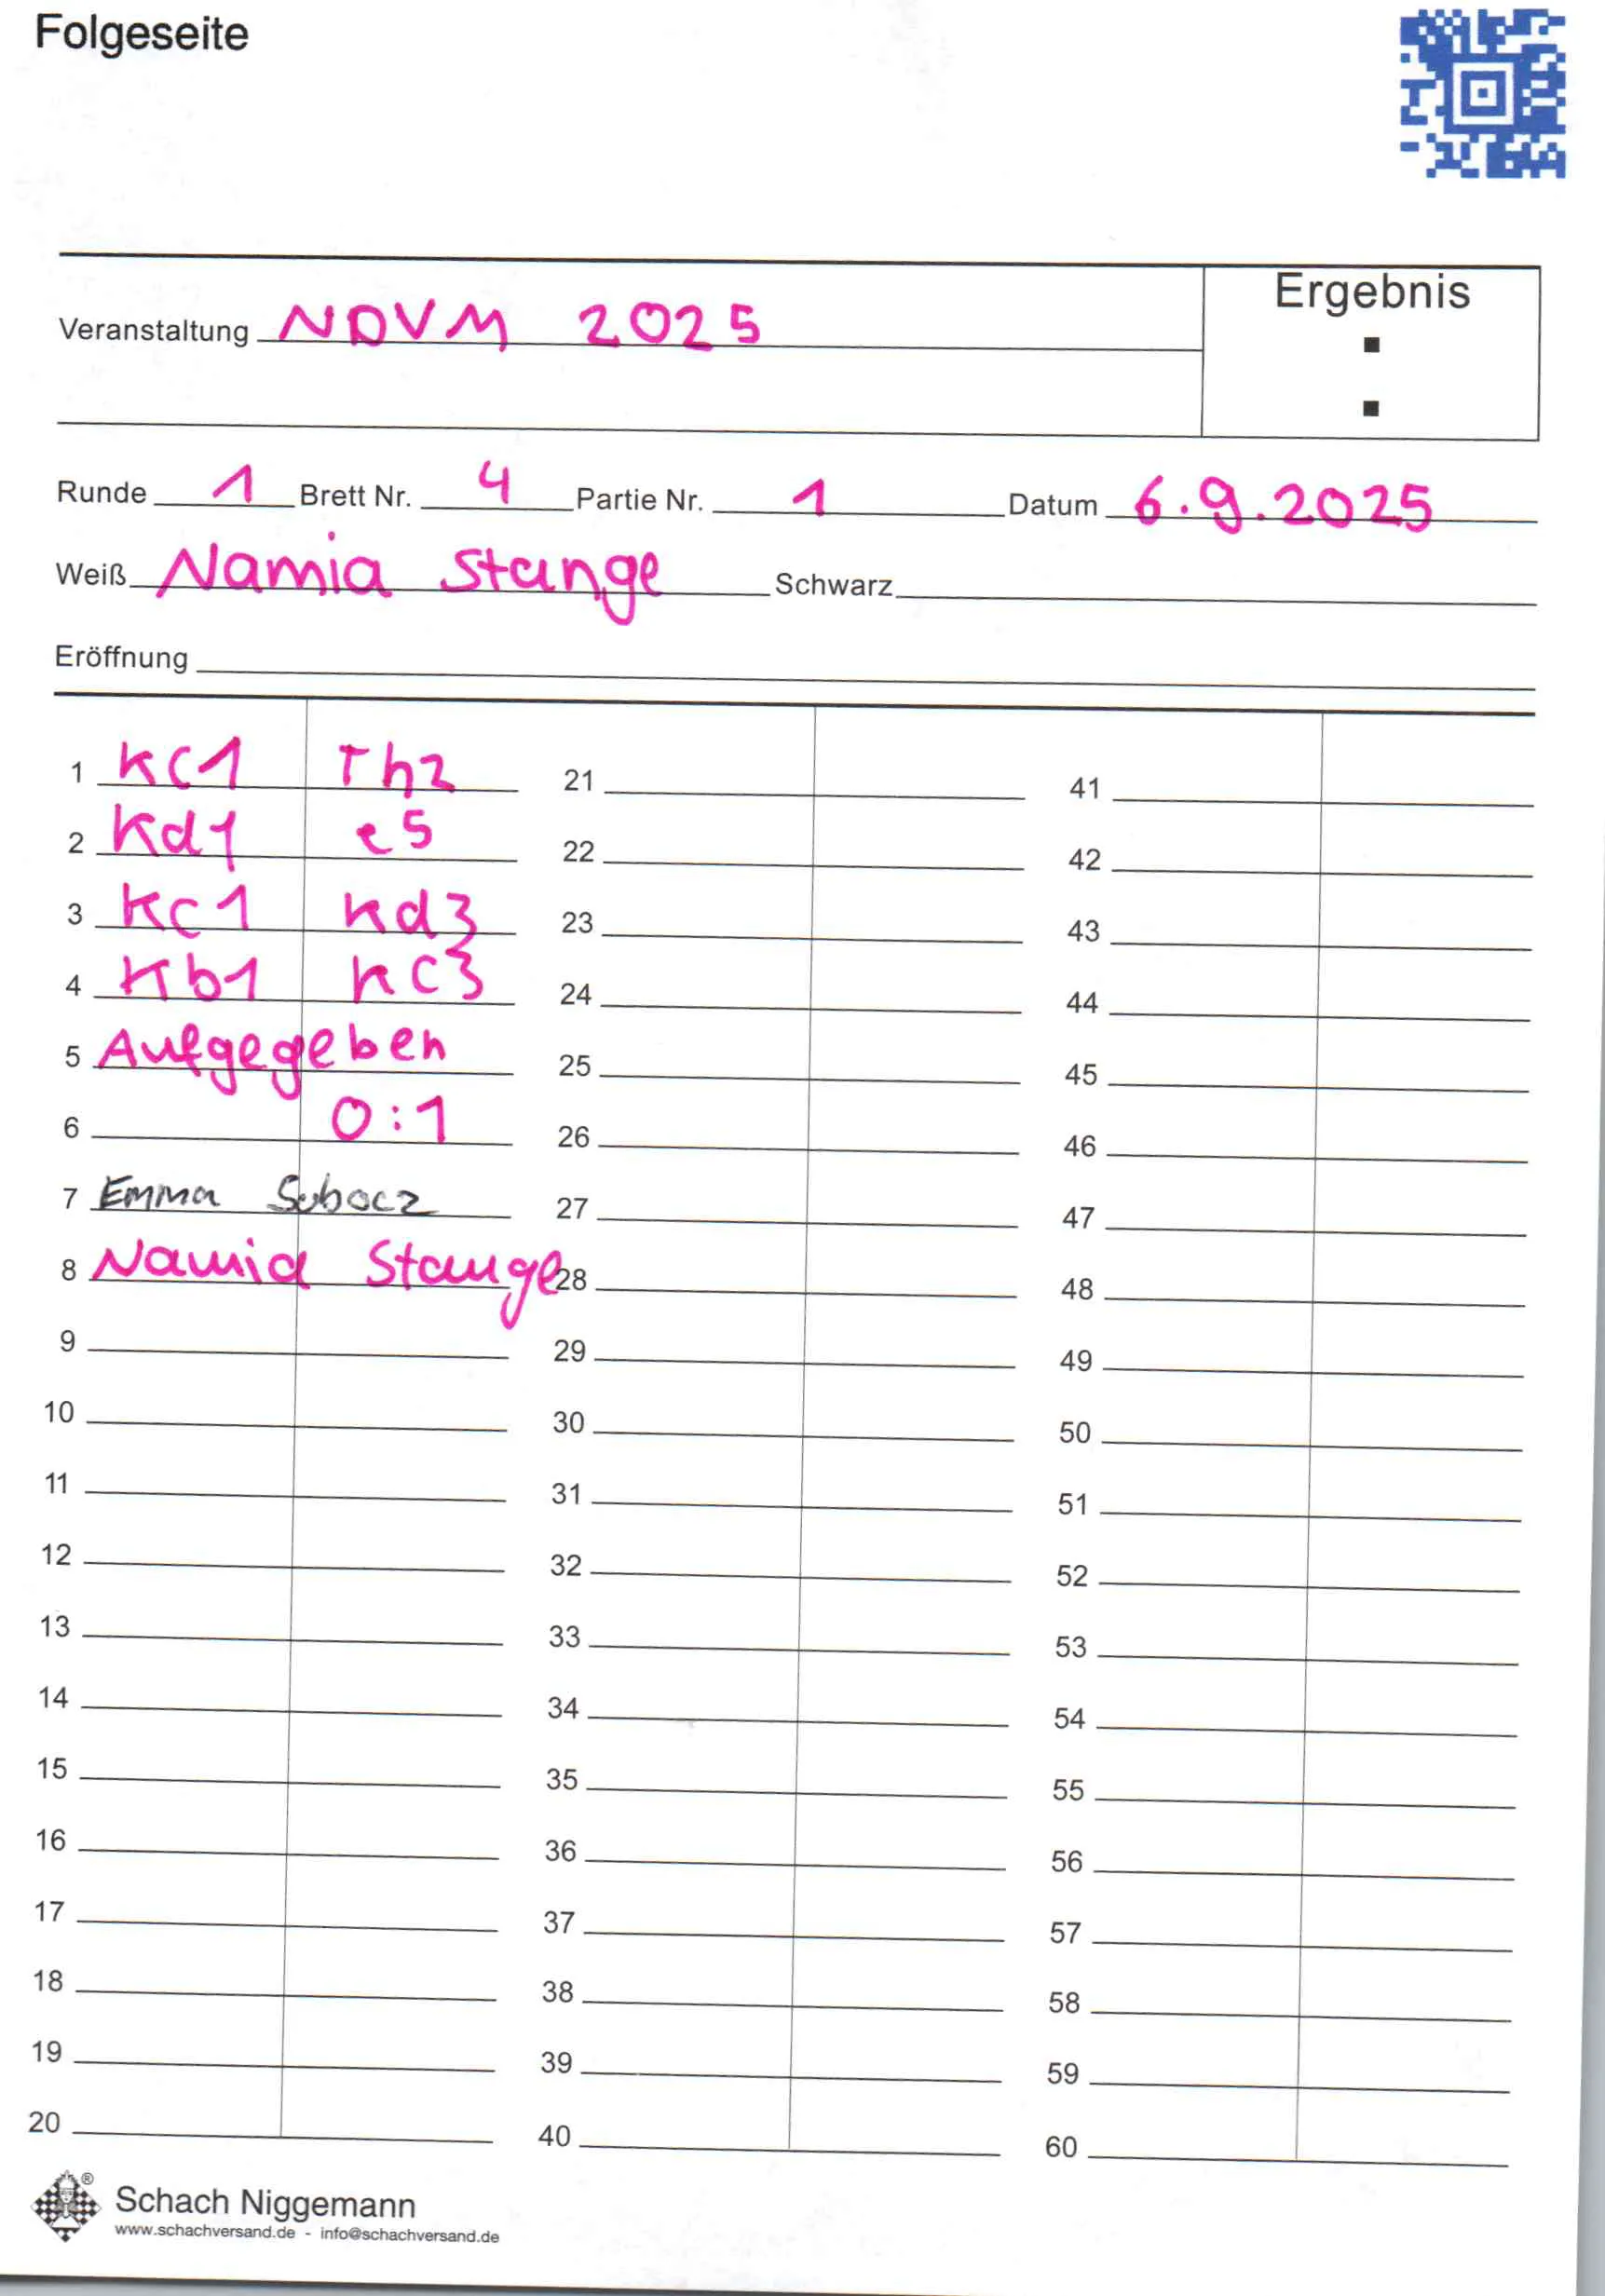 Folgeseite
Ergebnis
Veranstaltung NDVM 2025
:
Runde 1 Brett Nr. 4 Partie Nr. 1 Datum 6.9.2025
Weiß Namia Stange Schwarz
Eröffnung
1 Kc1 Th2 21 41
2 Kd1 e5 22 42
3 Kc1 Kd3 23 43
4 Kb1 Kc3 24 44
5 Aufgegeben 25 45
6 0:1 26 46
7 Emma Subocz 27 47
8 Namia Stange 28 48
9 29 49
10 30 50
11 31 51
12 32 52
13 33 53
14 34 54
15 35 55
16 36 56
17 37 57
18 38 58
19 39 59
20 40 60
® Schach Niggemann
www.schachversand.de - info@schachversand.de